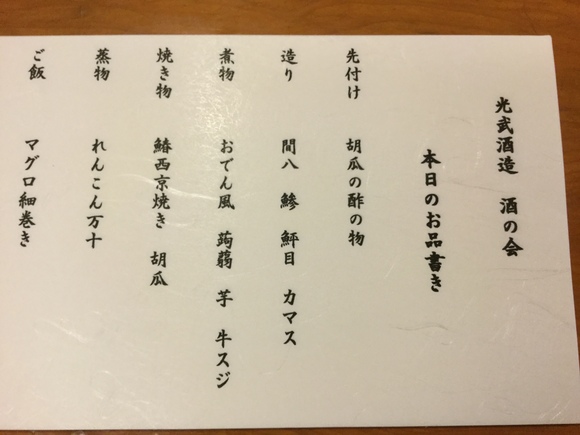 光武酒造 酒の会
本日のお品書き
先付け 胡瓜の酢の物
造り 間八 鯵 鮃目 カマス
煮物 おでん風 蒟蒻 芋 牛スジ
焼き物 鰆西京焼き 胡瓜
蒸物 れんこん万十
ご飯 マグロ細巻き